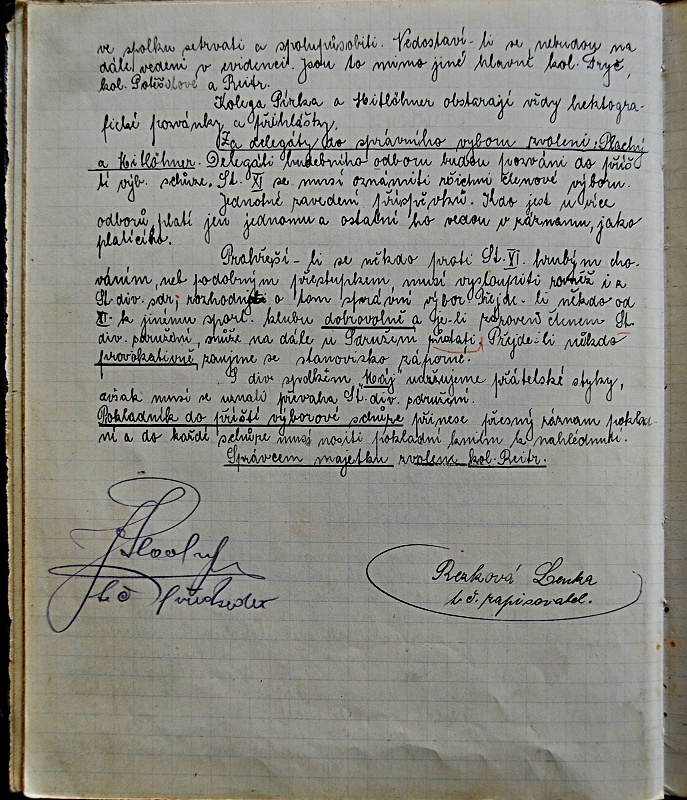 ve spolku setrvati a spolupůsobiti. Nedostaví-li se, nebudou na
dále vedeni v evidenci. Jsou to mimo jiné hlavně kol. Dryč,
kol. a Reitr.
Kolega Pírka a Hitlöhner obstarají vždy hektogra-
fické pozvánky a přihlášky.
Za delegáty do správního výboru zvoleni: Plachý
a Hitlöhner. Delegáti hudebního odboru budou pozváni do příš-
tí výb. schůze. St. XI se musí oznámiti všichni členové výboru.
Jednotné zavedení příspěvků. Kdo jest u více
odborů platí jen jednomu a ostatní ho vedou v záznamu, jako
platícího.
Prohřeší-li se někdo proti St. VI. hrubým cho-
váním, neb podobným přestupkem, musí vystoupiti rovněž i z
St. div. sdr; rozhodne o tom správní výbor. Přejde-li někdo od
XI. k jinému sport. klubu dobrovolně a je-li zároveň členem St.
div. sdružení může na dále u Sdružení zůstati. Přejde-li někdo
provokativně, zaujme se stanovisko záporné.
S div. spolkem "Máj" udržujeme přátelské styky,
avšak musí se uznati převaha St. div. sdružení.
Pokladník do příští výborové schůze přinese přesný záznam poklad-
ní a do každé schůze musí nositi pokladní knihu k nahlédnutí.
Správcem majetku zvolen kol. Reitr.
t. č. předseda
Rezková Lenka
t. č. zapisovatel.